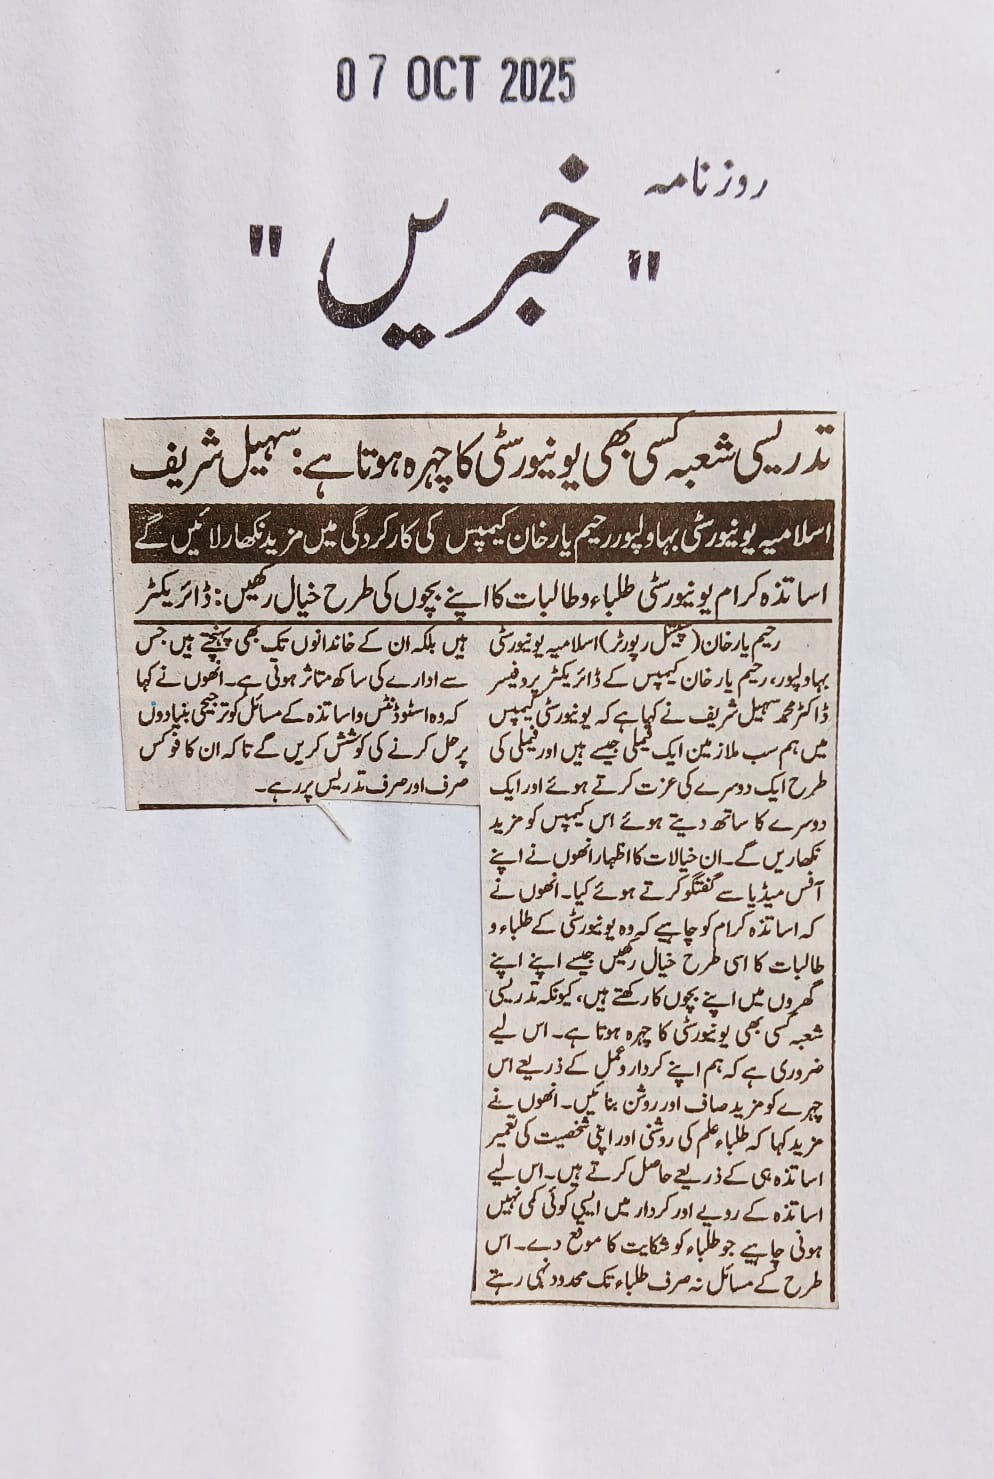 07 OCT 2025
روزنامہ
"خبریں"
تدریسی شعبہ کسی بھی یونیورسٹی کا چہرہ ہوتا ہے: سہیل شریف
اسلامیہ یونیورسٹی بہاولپور رحیم یار خان کیمپس کی کارکردگی میں مزید نکھار لائیں گے
اساتذہ کرام یونیورسٹی طلباء و طالبات کا اپنے بچوں کی طرح خیال رکھیں: ڈائریکٹر
رحیم یار خان (سپیشل رپورٹر) اسلامیہ یونیورسٹی
بہاولپور، رحیم یار خان کیمپس کے ڈائریکٹر پروفیسر
ڈاکٹر محمد سہیل شریف نے کہا ہے کہ یونیورسٹی کیمپس
میں ہم سب ملازمین ایک فیملی جیسے ہیں اور فیملی کی
طرح ایک دوسرے کی عزت کرتے ہوئے اور ایک
دوسرے کا ساتھ دیتے ہوئے اس کیمپس کو مزید
نکھاریں گے۔ ان خیالات کا اظہار انھوں نے اپنے
آفس میڈیا سے گفتگو کرتے ہوئے کیا۔ انھوں نے
کہ اساتذہ کرام کو چاہیے کہ وہ یونیورسٹی کے طلباء و
طالبات کا اسی طرح خیال رکھیں جیسے اپنے اپنے
گھروں میں اپنے بچوں کا رکھتے ہیں، کیونکہ تدریسی
شعبہ کسی بھی یونیورسٹی کا چہرہ ہوتا ہے۔ اس لیے
ضروری ہے کہ ہم اپنے کردار و عمل کے ذریعے اس
چہرے کو مزید صاف اور روشن بنائیں۔ انھوں نے
مزید کہا کہ طلباء علم کی روشنی اور اپنی شخصیت کی تعمیر
اساتذہ ہی کے ذریعے حاصل کرتے ہیں۔ اس لیے
اساتذہ کے رویے اور کردار میں ایسی کوئی کمی نہیں
ہونی چاہیے جو طلباء کو شکایت کا موقع دے۔ اس
طرح کے مسائل نہ صرف طلباء تک محدود نہی رہتے
ہیں بلکہ ان کے خاندانوں تک بھی پہنچتے ہیں جس
سے ادارے کی ساکھ متاثر ہوتی ہے۔ انھوں نے کہا
کہ وہ اسٹوڈنٹس و اساتذہ کے مسائل کو ترجیحی بنیادوں
پر حل کرنے کی کوشش کریں گے تاکہ ان کا فوکس
صرف اور صرف تدریس پر رہے۔